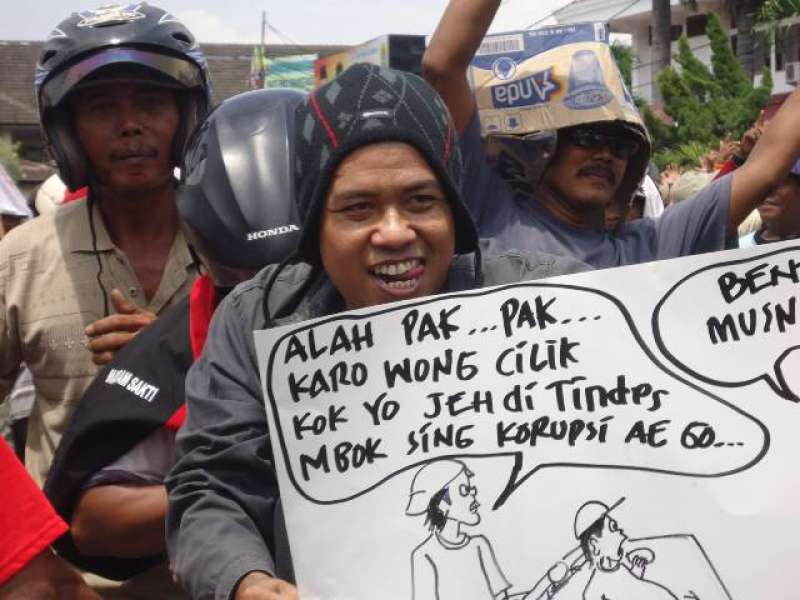 HONDA
Anda
SAKTI
ALAH PAK...PAK...
KARO WONG CILIK
KOK YO JEH di Tindes
MBOK SING KORUPSI AE GO...
BEN
MUSN